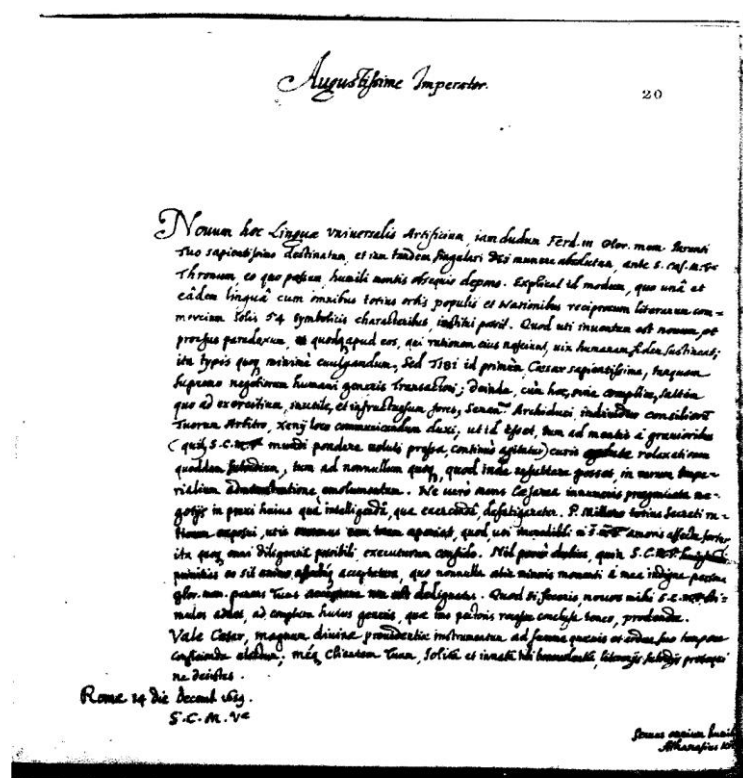 Augustissime Imperator.
20
Novum hoc Linguæ vniuersalis Artificium, iamdudum Ferd. III glor. mem. Parenti
Tuo sapientissimo destinatum, et iam tandem singulari DEI munere absolutum, ante S. Cæs. M. Væ
Thronum, eo quo possum, humili mentis obsequio depono. Explicat id modum, quo unâ et
eâdem linguâ cum omnibus totius orbis populis et Nationibus reciprocum literarum com-
mercium solis 54 symbolicis characteribus, institui possit. Quod uti inuentum est nouum, et
prorsus paradoxum, et quodq apud eos, qui rationem eius nesciunt, uix humanam fidem sustineat;
ita typis quoq minimè euulgandum, Sed TIBI id primùm, Cæsar sapientissime, tanquam
supremo negotiorum humani generis Transactori; deinde, cùm hoc, sine complice, saltem
quo ad exercitium, inutile, et infructuosum foret, Seren.mo Archiduci consiliorũ
Tuorum Arbitro, xenij loco communicandum duxi, ut id esset, tum ad mentis à grauioribus
(quîs S.C.M.V. mundi pondere ueluti pressa, continuò agitatur) curis relaxationem
quoddam subsidium, tum ad nonnullum quoq, quod inde resultare posset, in rerum Impe-
rialium administratione emolumentum. Ne uerò mens Cæsarea innumeris prægrauata ne-
gotijs in praxi huius quà intelligendâ, quà exercendâ, defatigaretur. P. Millero totius secreti ra-
tionem exposui, utis aperiat, quod, uti incredibili amoris affectu
ita quoq omni diligentiâ possibili, executurum confido. Nil porrò dubito, quin S.C.M.V.
primitias eo sit acceptatura, quo nonnulla alia minoris momenti à mea indigna persona
glor. mem. parens Tuus est dedignatus. Quod si fecerit, nouos mihi S.C.M.V. sti-
mulos addet, ad complura huius generis, quæ
Vale Cæsar, magnum diuinæ prouidentiæ instrumentum ad summa quæuis et ardua suo tempore
conficienda; meq Clientem Tuum, solita et innata tibi beneuolentia, literarijs
ne desistas.
Romæ 14 die Decemb. 1659.
S. C. M. Væ
Seruus omnium
Athanasius